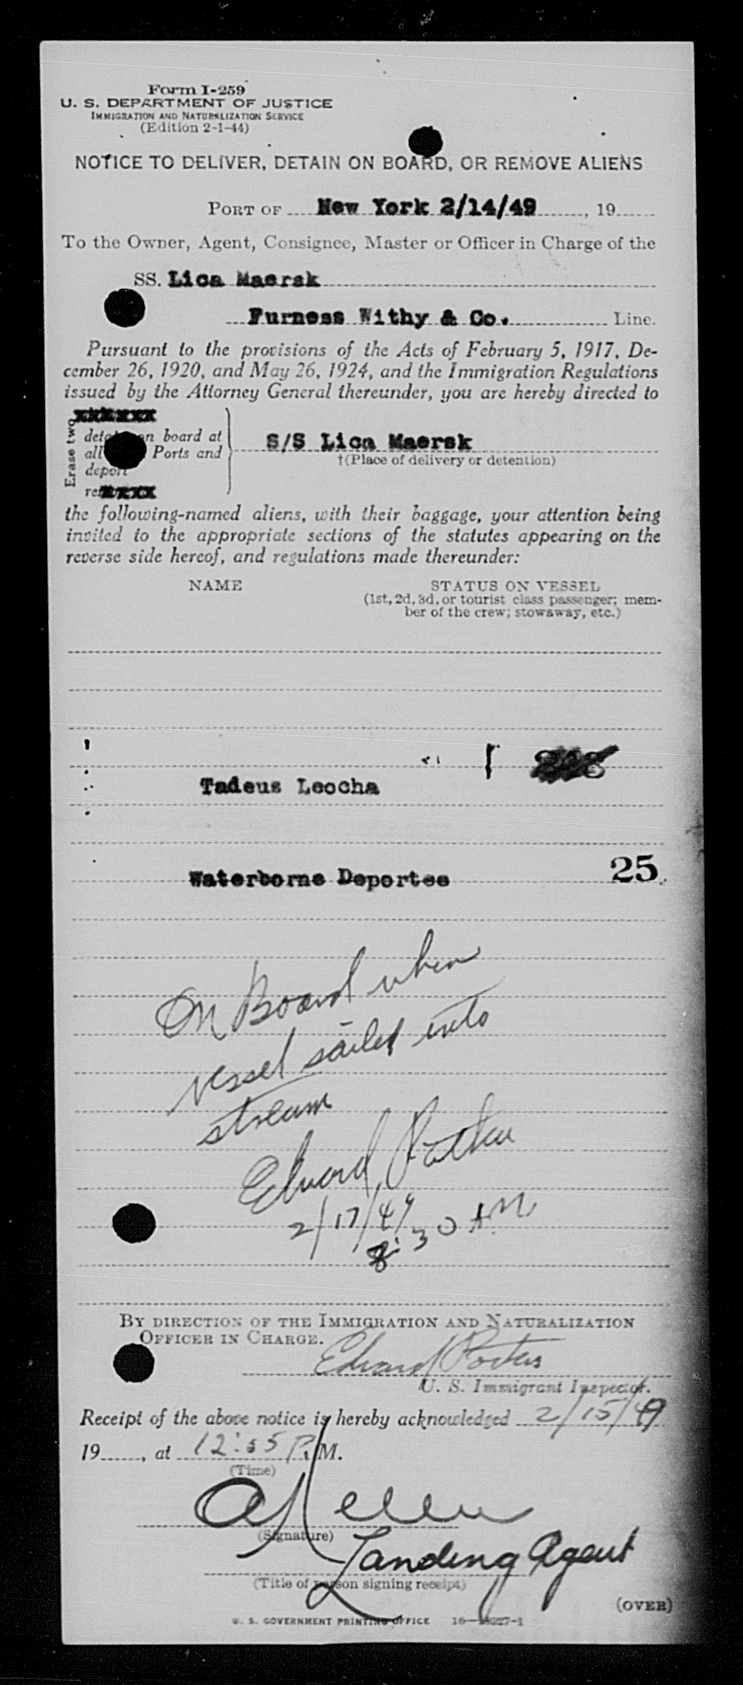 Form I-259
U. S. DEPARTMENT OF JUSTICE
IMMIGRATION AND NATURALIZATION SERVICE
(Edition 2-1-44)
NOTICE TO DELIVER, DETAIN ON BOARD, OR REMOVE ALIENS
PORT OF New York 2/14/49, 19
To the Owner, Agent, Consignee, Master or Officer in Charge of the
SS. Lica Maersk
Furness Withy & Co. Line.
Pursuant to the provisions of the Acts of February 5, 1917, De-
cember 26, 1920, and May 26, 1924, and the Immigration Regulations
issued by the Attorney General thereunder, you are hereby directed to
Erase two
xxxxxxx
board at
all Ports and
deport
S/S Lica Maersk
†(Place of delivery or detention)
the following-named aliens, with their baggage, your attention being
invited to the appropriate sections of the statutes appearing on the
reverse side hereof, and regulations made thereunder:
NAME STATUS ON VESSEL
(1st, 2d, 3d, or tourist class passenger; mem-
ber of the crew; stowaway, etc.)
Tadeus Leocha
Waterborne Deportee 25
On Board when
vessel sailed into
stream
Edward
2/17/49
8:30 AM
BY DIRECTION OF THE IMMIGRATION AND NATURALIZATION
OFFICER IN CHARGE.
Edward
U. S. Immigrant Inspector.
Receipt of the above notice is hereby acknowledged 2/15/49
19, at 12:55 P.M.
(Time)
(Signature)
Landing Agent
(Title of person signing receipt)
(OVER)
U. S. GOVERNMENT PRINTING OFFICE